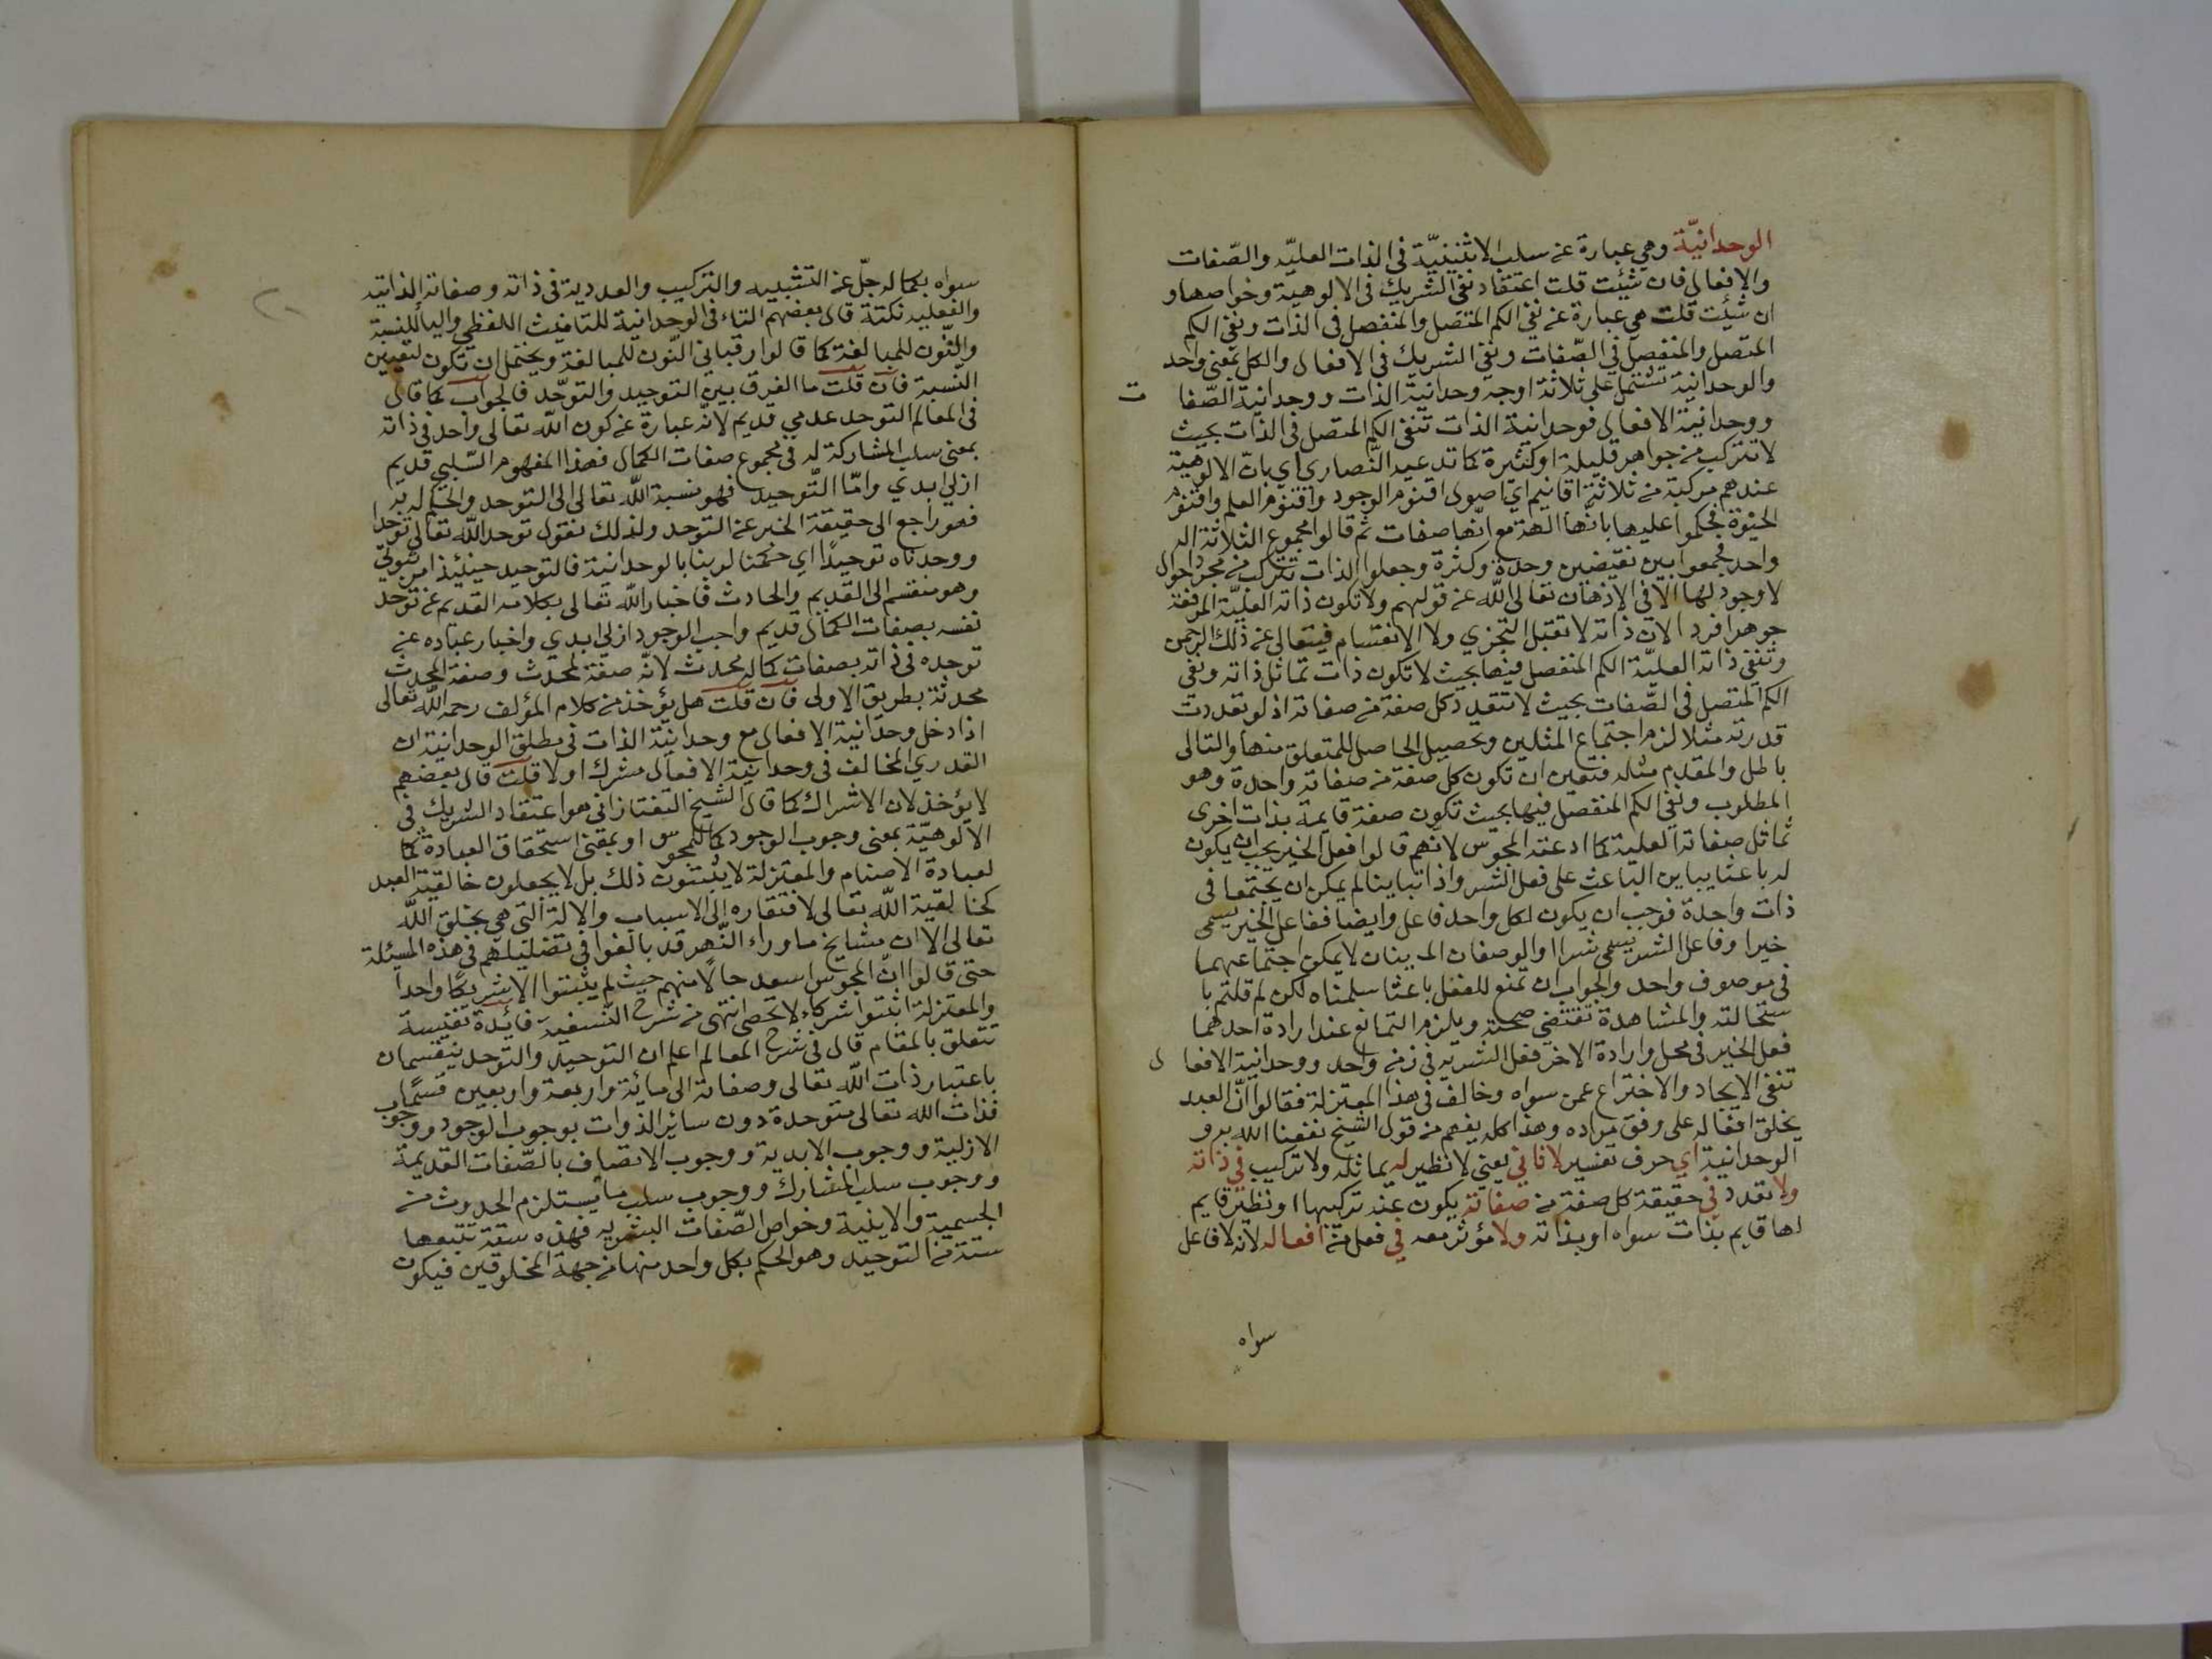 الوحدانيّة وهي عبارة عن سلب الاثنينيّة فى الذات العليّه والصّفات
والافعال فان شئت قلت اعتقاد نفي الشريك فى الالوهية وخواصها و
ان شئت قلت هي عبارة عن نفي الكم المتصل والمنفصل فى الذات ونفي الكم
المتصل والمنفصل في الصّفات ونفي الشريك فى الافعال والكل بمعنى واحد
والوحدانية تشتمل على ثلاثة اوجه وحدانية الذات ووحدانية الصّفا ت
ووحدانية الافعال فوحدانية الذات تنفي الكم المتصل فى الذات بحيث
لا تتركب من جواهر قليلة او كثيرة كما تدعيه النّصارى اي بانّ الالوهية
عندهم مركبة من ثلاثة اقانيم اي اصول اقنوم الوجود واقنوم العلم واقنوم
الحيوة فحكموا عليها بانّها الهة مع انّها صفات ثم قالوا مجموع الثلاثة اله
واحد فجمعوا بين نقيضين وحدة وكثرة وجعلوا الذات تتركب من مجرد احوال
لا وجود لها الا في الاذهان تعالى اللّه عن قولهم ولا تكون ذاته العليّة المرفعة
جوهرا فرد الان ذاته لا تقبل التجزي ولا الانقسام فيتعالى عن ذلك الرحمن
وتنفي ذاته العليّة الكم المنفصل فيها بحيث لا تكون ذات تماثل ذاته ونفي
الكم المتصل فى الصّفات بحيث لا تتعدد كل صفة من صفاته اذ لو تعددت
قدرته مثلا لزم اجتماع المثلين وتحصيل الحاصل للمتعلق منها والتالى
باطل والمقدم مثله فتعين ان تكون كل صفة من صفاته واحدة وهو
المطلوب ونفي الكم المنفصل فيها بحيث تكون صفة قايمة بذات اخرى
تماثل صفاته العلية كما ادعته المجوس لانّهم قالوا فعل الخير يجب ان يكون
له باعثا يباين الباعث على فعل الشر واذا تباينا لم يمكن ان يجتمعا فى
ذات واحدة فوجب ان يكون لكل واحد فاعل وايضا ففاعل الخير يسمى
خيرا وفاعل الشر يسمى شرا والوصفان المتباينان لا يمكن اجتماعهما
في موصوف واحد والجواب ان تمنع للفعل باعثا سلمناه لكن لم قلتم با
ستحالته والمشاهدة تقتضي صحته ويلزم التمانع عند ارادة احدهما
فعل الخير فى محل وارادة الاخر فعل الشر به فى زمن واحد ووحدانية الافعا ل
تنفي الايجاد والاختراع عمن سواه وخالف فى هذا المعتزلة فقالوا انّ العبد
يخلق افعاله على وفق مراده وهذا كله يفهم من قول الشيخ نفعنا الله به و
الوحدانية اي حرف تفسير لا ثاني يعني لا نظير له يماثله ولا تركيب في ذاته
ولا تعدد في حقيقة كل صفة من صفاته يكون عنه تركيبها او نظير قايم
لها قايم بذات سواه او بذاته ولا مؤثر معه في فعل من افعاله لانه لا فاعل
سواه
سواه بكماله جلّ عن التشبيه والتركيب والعددية فى ذاته وصفاته الذاتية
والفعلية نكتة قال بعضهم التاء فى الوحدانية للتانيث اللفظي واليأ للنسبة
والنّون للمبالغة كما قالوا رقباني النّون للمبالغة ويحتمل ان تكون لتعيين
النّسبة فان قلت ما الفرق بين التوحيد والتوحّد فالجواب كما قال
فى المعالم التوحد عدمي قديم لانّه عبارة عن كون اللّه تعالى واحد فى ذاته
بمعنى سلب المشاركة له فى مجموع صفات الكمال فهذا المفهوم السّلبي قديم
ازلي ابدي وامّا التّوحيد فهو نسبة اللّه تعالى الى التوحد والحكم له به
فهو راجع الى حقيقة الخبر عن التوحد ولذلك نقول توحد اللّه تعالى توحدا
ووحدناه توحيدًا اي حكمنا لربنا بالوحدانية فالتوحيد حينئذ امر ثبوتيّ
وهو منقسم الى القديم والحادث فاخبار اللّه تعالى بكلامه القديم عن توحد
نفسه بصفات الكمال قديم واجب الوجود ازلي ابدي واخبار عباده عن
توحده فى ذاته بصفات كماله محدث لانّه صفة لمحدث وصفة المحدث
محدثة بطريق الاولى فان قلت هل يؤخذ من كلام المؤلف رحمه اللّه تعالى
اذا دخل وحدانية الافعال مع وحدانية الذات فى مطلق الوحدانية ان
القدري المخالف فى وحدانية الافعال مشرك او لا قلت قال بعضهم
لا يؤخذ لان الاشراك كما قال الشيخ التفتازاني هو اعتقاد الشريك في
الالوهيّة بمعنى وجوب الوجود كما للمجوس او بمعنى استحقاق العبادة كما
لعبادة الاصنام والمعتزلة لا يثبتون ذلك بل لا يجعلون خالقية العبد
كخالقية اللّه تعالى لافتقاره الى الاسباب والالة التى هي بخلق اللّه
تعالى الا ان مشايخ ماوراء النّهر قد بالغوا فى تضليلهم فى هذه المسئلة
حتى قالوا انّ المجوس اسعد حالًا منهم حيث لم يثبتوا الا شريكًا واحدا
والمعتزلة اثبتوا شركاء لا تحصى انتهى من شرح النّسفية فائدة نفيسة
تتعلق بالمقام قال فى شرح المعالم اعلم ان التوحيد والتوحد ينقسمان
باعتبار ذات اللّه تعالى وصفاته الى مائة واربعة واربعين قسمًا
فذات الله تعالى متوحدة دون سائر الذوات بوجوب الوجود ووجوب
الازلية ووجوب الابدية ووجوب الاتصاف بالصّفات القديمة
ووجوب سلب المشارك ووجوب سلب ما يستلزم الحدوث من
الجسمية والاينية وخواص الصّفات البشريه فهذه ستة تتبعها
ستة من التوحيد وهو الحكم بكل واحد منها من جهة المخلوقين فيكون